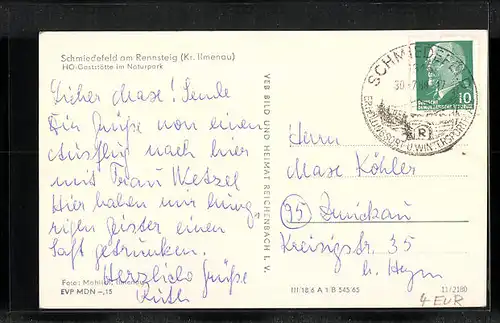 Schmiedefeld am Rennsteig (Kr. Ilmenau)
HO-Gaststätte im Naturpark
Lieber Maxe! Sende
Dir Grüße von einem
Ausflug nach hier
mit Frau Wetzel
Hier haben wir hung-
rigen Geister einen
Saft getrunken.
Herzliche Grüße
Ruth
Foto: Ilmenau
EVP MDN –,15
VEB BILD UND HEIMAT REICHENBACH I. V.
SCHMIEDEFELD
R
10
Herrn
Maxe Köhler
(95) Zwickau
Kreisigstr. 35
b. Heyn
III 18 6 A 1 B 545/65
11/2180
4 EUR